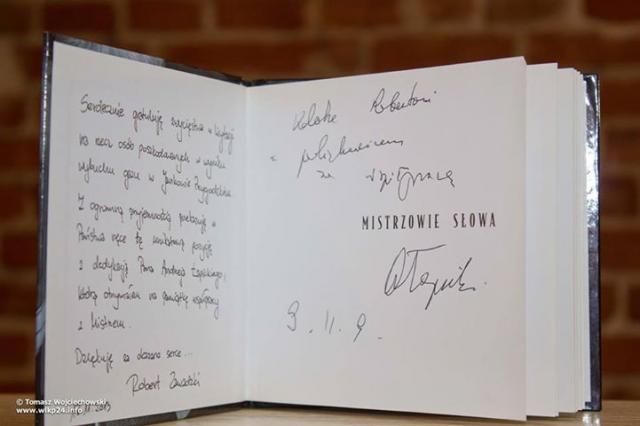 Serdecznie gratuluję zwycięstwa w licytacji
na rzecz osób poszkodowanych w wyniku
wybuchu gazu w Jankowie Przygodzkim.
Z ogromną przyjemnością przekazuję w
Państwa ręce tę unikatową pozycję
z dedykacją Pana Andrzeja Łapickiego,
którą otrzymałem na pamiątkę współpracy
z Mistrzem.
Dziękuję za okazane serce...
Robert Zawadzki
11.2013
© Tomasz Wojciechowski
www.wlkp24.info
Robertowi
z podziękowaniem
za współpracę
MISTRZOWIE SŁOWA
AŁapicki
3.11.9.